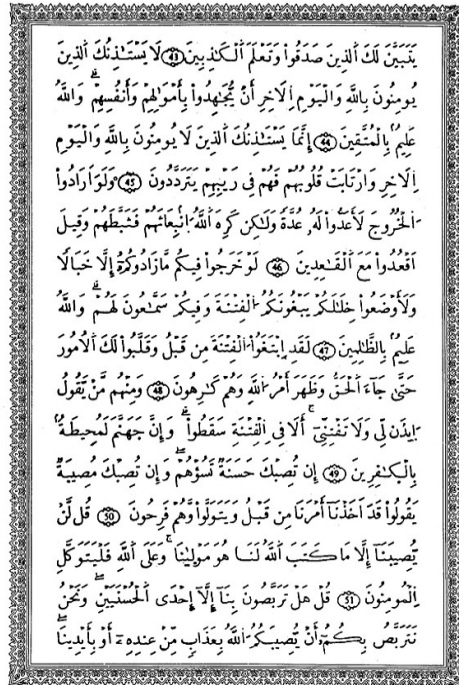 يَتَبَيَّنَ لَكَ اَ۬لذِينَ صَدَقُواْ وَتَعْلَمَ اَ۬لْكَٰذِبِينَ 43 لَا يَسْتَـٰٔذِنُكَ اَ۬لذِينَ
يُومِنُونَ بِاللَّهِ وَالْيَوْمِ اِ۬لَاخِرِ أَنْ يُّجَٰهِدُواْ بِأَمْوَٰلِهِمْ وَأَنْفُسِهِمْ وَاللَّهُ
عَلِيمٌ بِالْمُتَّقِينَ 44 إِنَّمَا يَسْتَـٰٔذِنُكَ اَ۬لذِينَ لَا يُومِنُونَ بِاللَّهِ وَالْيَوْمِ
اِ۬لَاخِرِ وَارْتَابَتْ قُلُوبُهُمْ فَهُمْ فِي رَيْبِهِمْ يَتَرَدَّدُونَ 45 وَلَوَ اَرَادُواْ
اُ۬لْخُرُوجَ لَأَعَدُّواْ لَهُۥ عُدَّةً وَلَٰكِن كَرِهَ اَ۬للَّهُ اُ۪نۢبِعَاثَهُمْ فَثَبَّطَهُمْ وَقِيلَ
اَ۟قْعُدُواْ مَعَ اَ۬لْقَٰعِدِينَ 46 لَوْ خَرَجُواْ فِيكُم مَّا زَادُوكُمُۥٓ إِلَّا خَبَالًا
وَلَأَوْضَعُواْ خِلَٰلَكُمْ يَبْغُونَكُمُ اُ۬لْفِتْنَةَ وَفِيكُمْ سَمَّٰعُونَ لَهُمْ وَاللَّهُ
عَلِيمٌ بِالظَّٰلِمِينَ 47 لَقَدِ اِ۪بْتَغَوُاْ اُ۬لْفِتْنَةَ مِن قَبْلُ وَقَلَّبُواْ لَكَ اَ۬لُامُورَ
حَتَّىٰ جَآءَ اَ۬لْحَقُّ وَظَهَرَ أَمْرُ اُ۬للَّهِ وَهُمْ كَٰرِهُونَ 48 وَمِنْهُم مَّنْ يَّقُولُ
اُ۪يذَن لِّي وَلَا تَفْتِنِّي أَلَا فِي اِ۬لْفِتْنَةِ سَقَطُواْ وَإِنَّ جَهَنَّمَ لَمُحِيطَةٌ
بِالْكٰ۪فِرِينَ 49 إِن تُصِبْكَ حَسَنَةٌ تَسُؤْهُمْ وَإِن تُصِبْكَ مُصِيبَةٌ
يَقُولُواْ قَدَ اَخَذْنَآ أَمْرَنَا مِن قَبْلُ وَيَتَوَلَّواْ وَّهُمْ فَرِحُونَ 50 قُل لَّنْ
يُّصِيبَنَآ إِلَّا مَا كَتَبَ اَ۬للَّهُ لَنَا هُوَ مَوْلَيٰنَا وَعَلَى اَ۬للَّهِ فَلْيَتَوَكَّلِ
اِ۬لْمُومِنُونَ 51 قُلْ هَلْ تَرَبَّصُونَ بِنَآ إِلَّآ إِحْدَى اَ۬لْحُسْنَيَيْنِ وَنَحْنُ
نَتَرَبَّصُ بِكُمُۥٓ أَنْ يُّصِيبَكُمُ اُ۬للَّهُ بِعَذَابٍ مِّنْ عِندِهِۦٓ أَوْ بِأَيْدِينَا